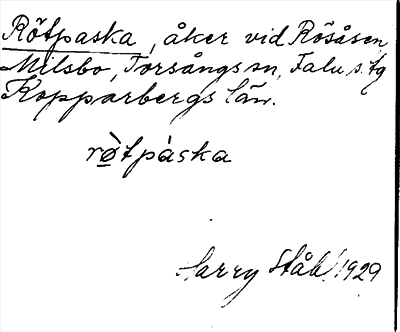 Rötpaska, åker vid Rösåsen
Milsbo, Torsångs sn, Falu s. tg
Kopparbergs län.
rø̀tpàska
Harry Ståhl 1929